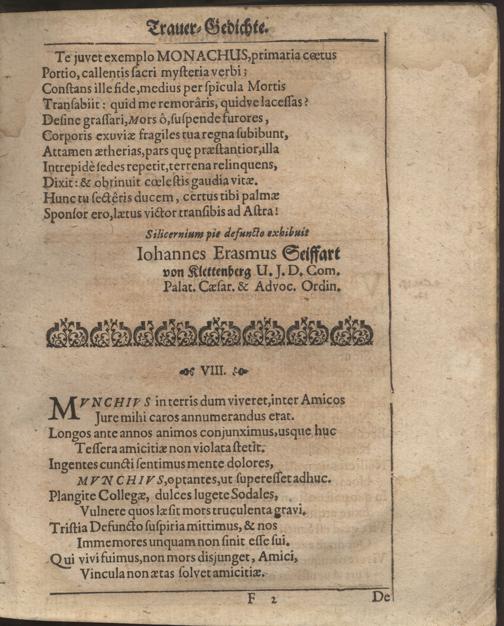 Trauer-Gedichte.
Te juvet exemplo MONACHUS, primaria cœtus
Portio, callentis sacri mysteria verbi;
Constans ille fide, medius per spicula Mortis
Transabiit: quid me remorâris, quidve lacessas?
Desine grassari, Mors ô, suspende furores,
Corporis exuviæ fragiles tua regna subibunt,
Attamen ætherias, pars quę præstantior, illa
Intrepidè sedes repetit, terrena relinquens,
Dixit: & obtinuit cœlestis gaudia vitæ.
Hunc tu sectêris ducem, certus tibi palmæ
Sponsor ero, lætus victor transibis ad Astra!
Silicernium pie defuncto exhibuit
Iohannes Erasmus Seiffart
von Klettenberg U. J. D. Com.
Palat. Cæsar. & Advoc. Ordin.
VIII.
MVNCHIVS in terris dum viveret, inter Amicos
Jure mihi caros annumerandus erat.
Longos ante annos animos conjunximus, usque huc
Tessera amicitiæ non violata stetit.
Ingentes cuncti sentimus mente dolores,
MVNCHIVS, optantes, ut superesset adhuc.
Plangite Collegæ, dulces lugete Sodales,
Vulnere quos læsit mors truculenta gravi.
Tristia Defuncto suspiria mittimus, & nos
Immemores unquam non sinit esse sui.
Qui vivi fuimus, non mors disjunget, Amici,
Vincula non ætas solvet amicitiæ.
F 2
De